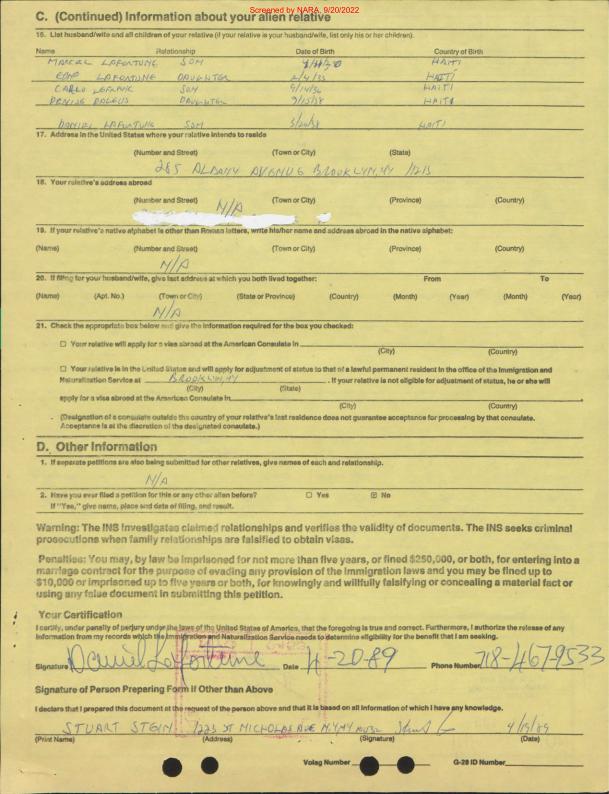 Screened by NARA, 9/20/2022
C. (Continued) Information about your alien relative
16. List husband/wife and all children of your relative (if your relative is your husband/wife, list only his or her children).
Name Relationship Date of Birth Country of Birth
MARCEL LAFORTUNE SON HAITI
LAFORTUNE DAUGHTER 2/4/33 HAITI
CARLO SON 9/14/36 HAITI
DENISE DAUGHTER 9/15/38 HAITI
DANIEL LAFORTUNE SON HAITI
17. Address in the United States where your relative intends to reside
(Number and Street) (Town or City) (State)
285 ALBANY AVENUE BROOKLYN, NY 11213
18. Your relative's address abroad
(Number and Street) (Town or City) (Province) (Country)
N/A
19. If your relative's native alphabet is other than Roman letters, write his/her name and address abroad in the native alphabet:
(Name) (Number and Street) (Town or City) (Province) (Country)
N/A
20. If filing for your husband/wife, give last address at which you both lived together: From To
(Name) (Apt. No.) (Town or City) (State or Province) (Country) (Month) (Year) (Month) (Year)
N/A
21. Check the appropriate box below and give the information required for the box you checked:
☐ Your relative will apply for a visa abroad at the American Consulate in
(City) (Country)
☐ Your relative is in the United States and will apply for adjustment of status to that of a lawful permanent resident in the office of the Immigration and
Naturalization Service at BROOKLYN, NY. If your relative is not eligible for adjustment of status, he or she will
(City) (State)
apply for a visa abroad at the American Consulate in
(City) (Country)
(Designation of a consulate outside the country of your relative's last residence does not guarantee acceptance for processing by that consulate.
Acceptance is at the discretion of the designated consulate.)
D. Other Information
1. If separate petitions are also being submitted for other relatives, give names of each and relationship.
N/A
2. Have you ever filed a petition for this or any other alien before? ☐ Yes ☒ No
If "Yes," give name, place and date of filing, and result.
Warning: The INS investigates claimed relationships and verifies the validity of documents. The INS seeks criminal
prosecutions when family relationships are falsified to obtain visas.
Penalties: You may, by law be imprisoned for not more than five years, or fined $250,000, or both, for entering into a
marriage contract for the purpose of evading any provision of the immigration laws and you may be fined up to
$10,000 or imprisoned up to five years or both, for knowingly and willfully falsifying or concealing a material fact or
using any false document in submitting this petition.
Your Certification
I certify, under penalty of perjury under the laws of the United States of America, that the foregoing is true and correct. Furthermore, I authorize the release of any
information from my records which the Immigration and Naturalization Service needs to determine eligibility for the benefit that I am seeking.
Signature Daniel Lafortune Date 4-20-89 Phone Number 718-467-9533
Signature of Person Preparing Form if Other than Above
I declare that I prepared this document at the request of the person above and that it is based on all information of which I have any knowledge.
STUART STEIN 1223 ST NICHOLAS AVE N.Y. NY 10032 4/19/89
(Print Name) (Address) (Signature) (Date)
Volag Number G-28 ID Number